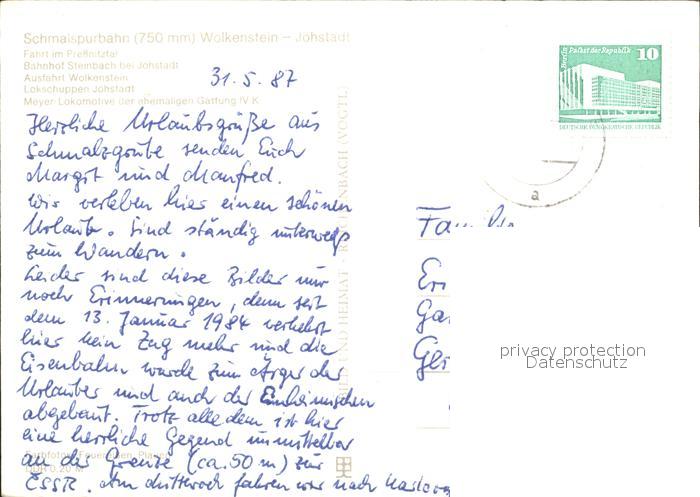 Schmalspurbahn (750 mm) Wolkenstein – Jöhstadt
Fahrt im Preßnitztal
Bahnhof Steinbach bei Jöhstadt
Ausfahrt Wolkenstein
Lokschuppen Jöhstadt
Meyer-Lokomotive der ehemaligen Gattung IV K
31.5.87
Herzliche Urlaubsgrüße aus
Schmalzgrube senden Euch
Margit und Manfred.
Wir verleben hier einen schönen
Urlaub. Sind ständig unterwegs
zum Wandern.
Leider sind diese Bilder nur
noch Erinnerungen, denn seit
dem 13. Januar 1984 verkehrt
hier kein Zug mehr und die
Eisenbahn wurde zum Ärger der
Urlauber und auch der Einheimischen
abgebaut. Trotz alledem ist hier
eine herrliche Gegend unmittelbar
an der Grenze (ca. 50 m) zur
ČSSR. Am Mittwoch fahren wir nach
DDR 0,20 M
BILD UND HEIMAT REICHENBACH (VOGTL)
Berlin Palast der Republik 10
DEUTSCHE DEMOKRATISCHE REPUBLIK
a
privacy protection
Datenschutz